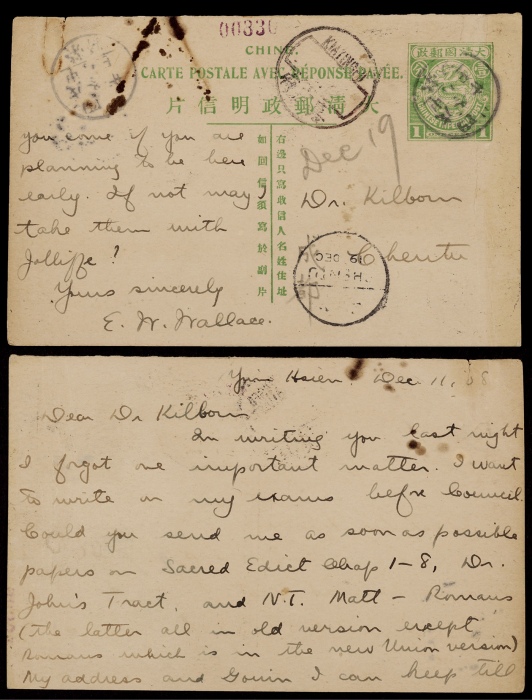 00330
CHINE
CARTE POSTALE AVEC RÉPONSE PAYÉE.
大清國郵政
片信明政郵清大
1
右邊只寫收信人名姓住址
如回信須寫於副片
Dec 19
Dr. Kilborn
Chentu
19 DEC
you come if you are
planning to be here
early. If not may I
take them with
Jolliffe?
Yours sincerely
E. W. Wallace.
Yuin Hsien. Dec 11, 08
Dear Dr Kilborn
In writing you last night
I forgot one important matter. I want
to write on my exams before Council.
Could you send me as soon as possible
papers on Sacred Edict Chap 1-8, Dr.
John's Tract, and N.T. Matt - Romans
(the latter all in old version except
Romans which is in the new Union version)
My address and I can keep till